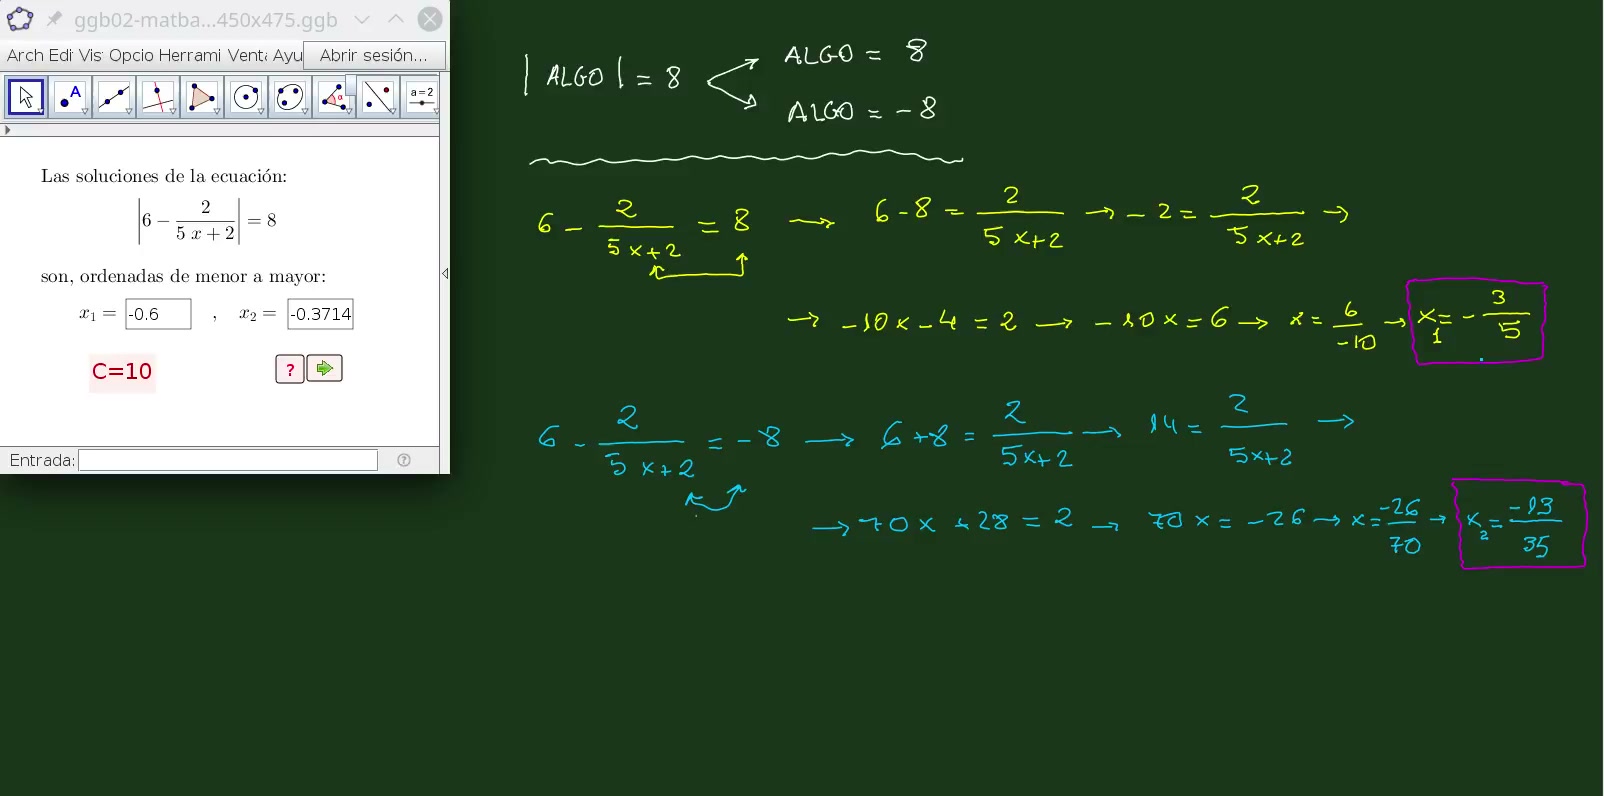 ggb02-matba...450x475.ggb
Arch Edi Vis Opcio Herrami Venta Ayu Abrir sesión...
A a=2
Las soluciones de la ecuación:
|6 − 2/(5 x + 2)| = 8
son, ordenadas de menor a mayor:
x₁ = -0.6 , x₂ = -0.3714
C=10 ?
Entrada:
| ALGO | = 8
ALGO = 8
ALGO = -8
6 - 2/(5x+2) = 8 → 6-8 = 2/(5x+2) → -2 = 2/(5x+2) →
→ -10x-4 = 2 → -10x = 6 → x = 6/-10 → x₁ = -3/5
6 - 2/(5x+2) = -8 → 6+8 = 2/(5x+2) → 14 = 2/(5x+2) →
→ 70x +28 = 2 → 70x = -26 → x = -26/70 → x₂ = -13/35